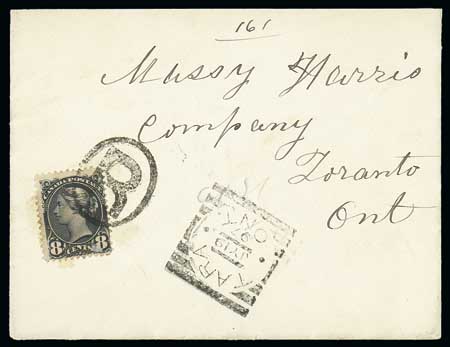 161
Massy Harris
Company
Toranto
Ont
R
CANADA POSTAGE
8 CENTS 8
ONT.
97
JY 19